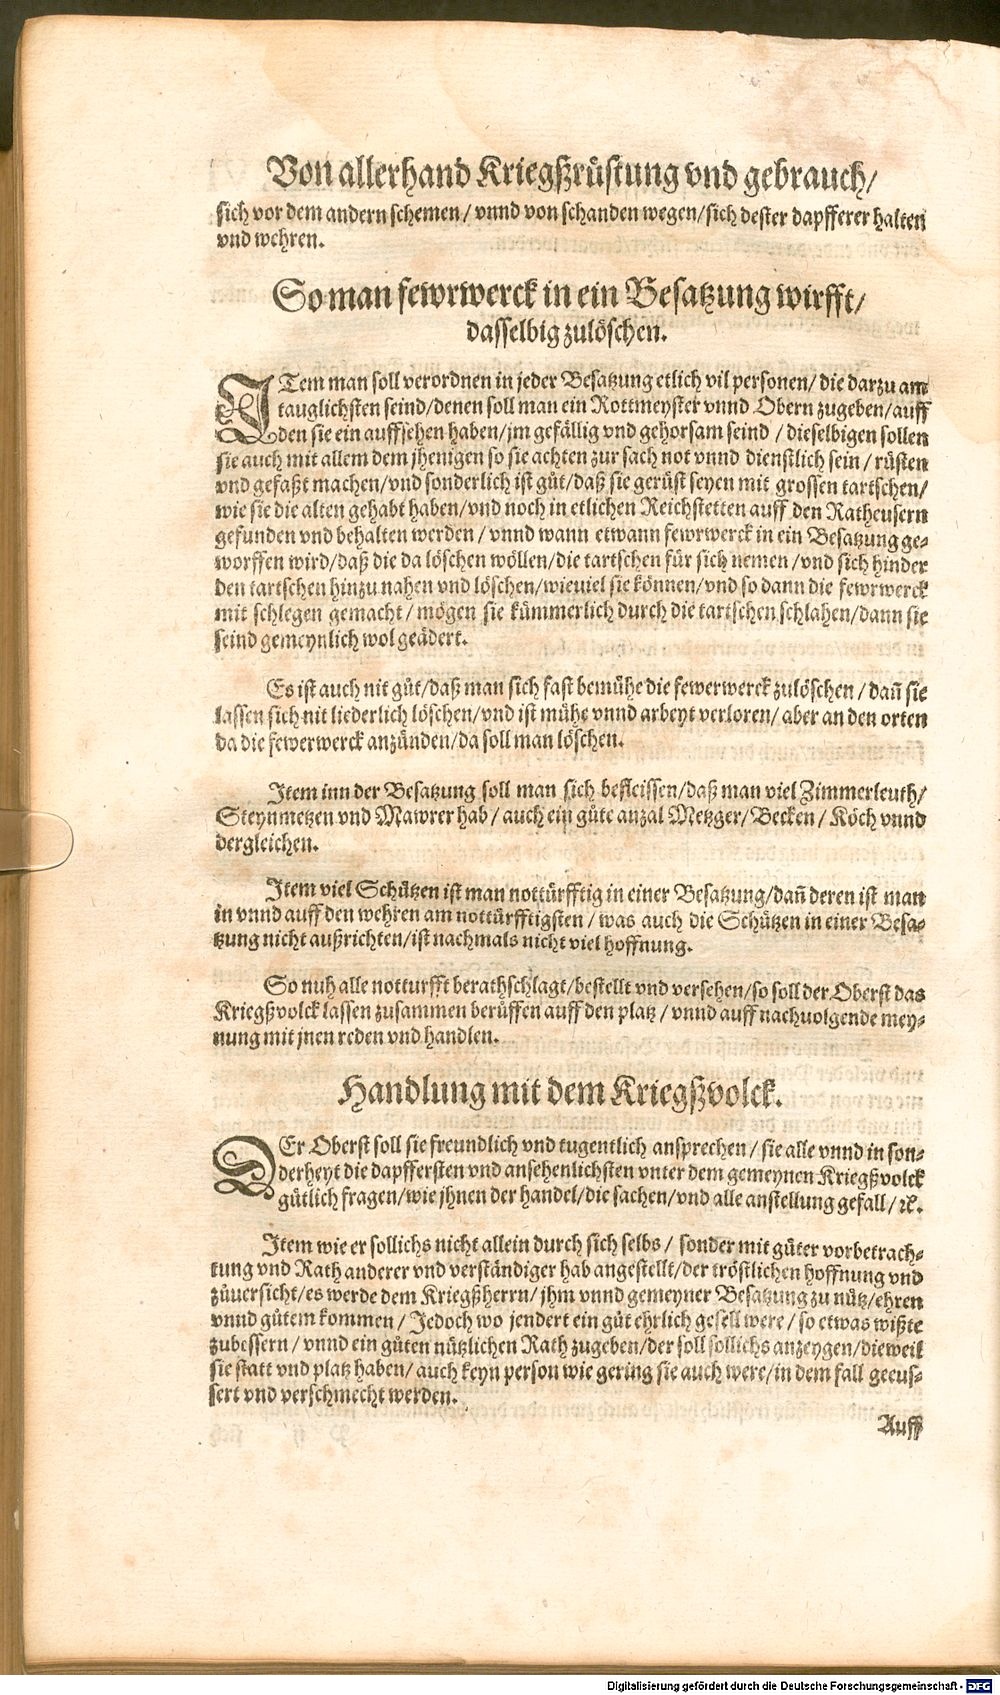 Von allerhand Kriegßrüstung vnd gebrauch/
sich vor dem andern schemen/ vnnd von schanden wegen/sich dester dapfferer halten
vnd wehren.
So man fewrwerck in ein Besatzung wirfft/
dasselbig zulöschen.
ITem man soll verordnen in jeder Besatzung etlich vil personen/ die darzu am
tauglichsten seind/denen soll man ein Rottmeyster vnnd Obern zugeben/auff
den sie ein auffsehen haben/jm gefällig vnd gehorsam seind / dieselbigen sollen
sie auch mit allem dem jhenigen so sie achten zur sach not vnnd dienstlich sein / rüsten
vnd gefaßt machen/vnd sonderlich ist gůt/daß sie gerüst seyen mit grossen tartschen/
wie sie die alten gehabt haben/vnd noch in etlichen Reichstetten auff den Ratheusern
gefunden vnd behalten werden / vnnd wann etwann fewrwerck in ein Besatzung ge-
worffen wird/daß die da löschen wöllen/die tartschen für sich nemen /vnd sich hinder
den tartschen hinzu nahen vnd löschen/wieuiel sie können/vnd so dann die fewrwerck
mit schlegen gemacht / mögen sie kümmerlich durch die tartschen schlahen/dann sie
seind gemeynlich wol geädert.
Es ist auch nit gůt/daß man sich fast bemühe die fewerwerck zulöschen / dañ sie
lassen sich nit liederlich löschen/vnd ist mühe vnnd arbeyt verloren/ aber an den orten
da die fewerwerck anzünden/da soll man löschen.
Item inn der Besatzung soll man sich befleissen/daß man viel Zimmerleuth/
Steynmetzen vnd Mawrer hab / auch ein gůte anzal Metzger/Becken / Köch vnnd
dergleichen.
Item viel Schützen ist man nottürfftig in einer Besatzung/dañ deren ist man
in vnnd auff den wehren am nottürfftigsten / was auch die Schützen in einer Besa-
tzung nicht außrichten/ist nachmals nicht viel hoffnung.
So nuh alle notturfft berathschlagt/bestellt vnd versehen/so soll der Oberst das
Kriegßvolck lassen zusammen berůffen auff den platz / vnnd auff nachuolgende mey-
nung mit jnen reden vnd handlen.
Handlung mit dem Kriegßvolck.
DEr Oberst soll sie freundlich vnd tugentlich ansprechen / sie alle vnnd in son-
derheyt die dapffersten vnd ansehenlichsten vnter dem gemeynen Kriegßvolck
gütlich fragen/wie jhnen der handel/die sachen/vnd alle anstellung gefall/ ꝛc.
Item wie er sollichs nicht allein durch sich selbs / sonder mit gůter vorbetrach-
tung vnd Rath anderer vnd verständiger hab angestellt/der tröstlichen hoffnung vnd
zůuersicht/es werde dem Kriegßherrn/ jhm vnnd gemeyner Besatzung zu nutz/ehren
vnnd gůtem kommen / Jedoch wo jendert ein gůt ehrlich gesell were / so etwas wißte
zubessern / vnnd ein gůten nützlichen Rath zugeben/der soll sollichs anzeygen/dieweil
sie statt vnd platz haben/ auch keyn person wie gering sie auch were/in dem fall geeus-
sert vnd verschmecht werden.
Auff
Digitalisierung gefördert durch die Deutsche Forschungsgemeinschaft - DFG